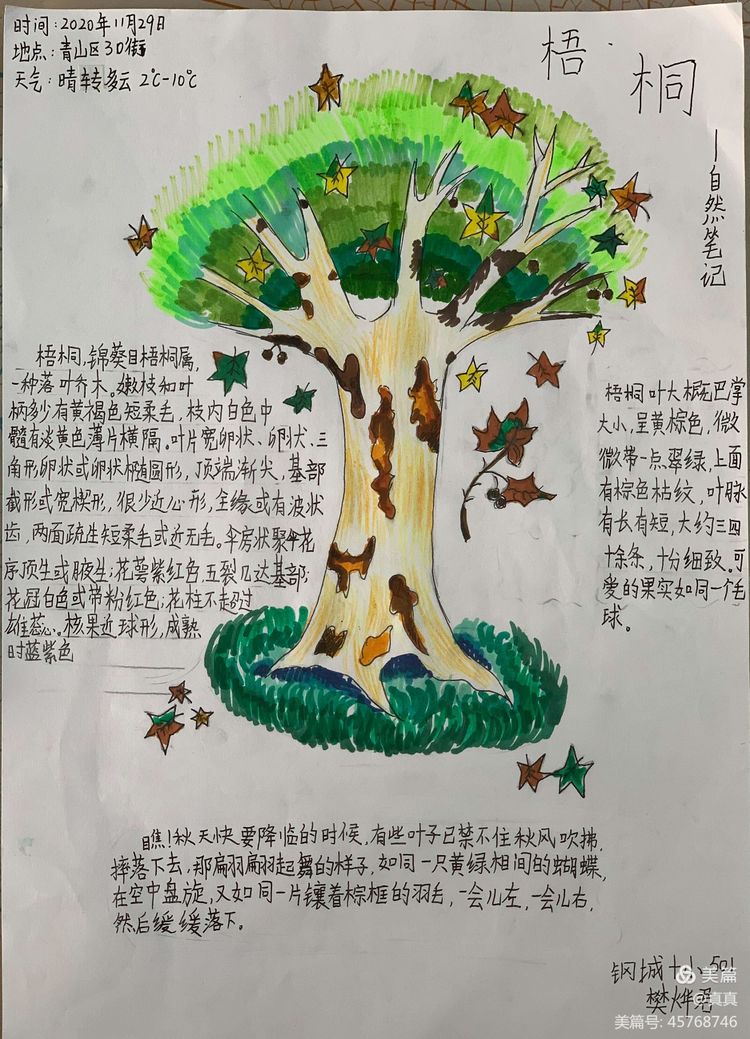 时间：2020年11月29日
地点：青山区30街
天气：晴转多云 2℃-10℃
梧桐
—自然笔记
梧桐，锦葵目梧桐属，
一种落叶乔木。嫩枝和叶
柄多少有黄褐色短柔毛，枝内白色中
髓有淡黄色薄片横隔。叶片宽卵状、卵状、三
角形卵状或卵状椭圆形，顶端渐尖，基部
截形或宽楔形，很少近心形，全缘或有波状
齿，两面疏生短柔毛或近无毛。伞房状聚伞花
序顶生或腋生；花萼紫红色，五裂几达基部；
花冠白色或带粉红色；花柱不超过
雄蕊。核果近球形，成熟
时蓝紫色
梧桐叶大概巴掌
大小，呈黄棕色，微
微带一点翠绿，上面
有棕色枯纹，叶脉
有长有短，大约三四
十余条，十分细致。可
爱的果实如同一个毛
球。
瞧！秋天快要降临的时候，有些叶子已禁不住秋风吹拂，
摔落下去，那扁羽扁羽起舞的样子，如同一只黄绿相间的蝴蝶，
在空中盘旋，又如同一片镶着棕框的羽毛，一会儿左，一会儿右，
然后缓缓落下。
钢城十小501
樊烨君
美篇
@真真
美篇号：45768746